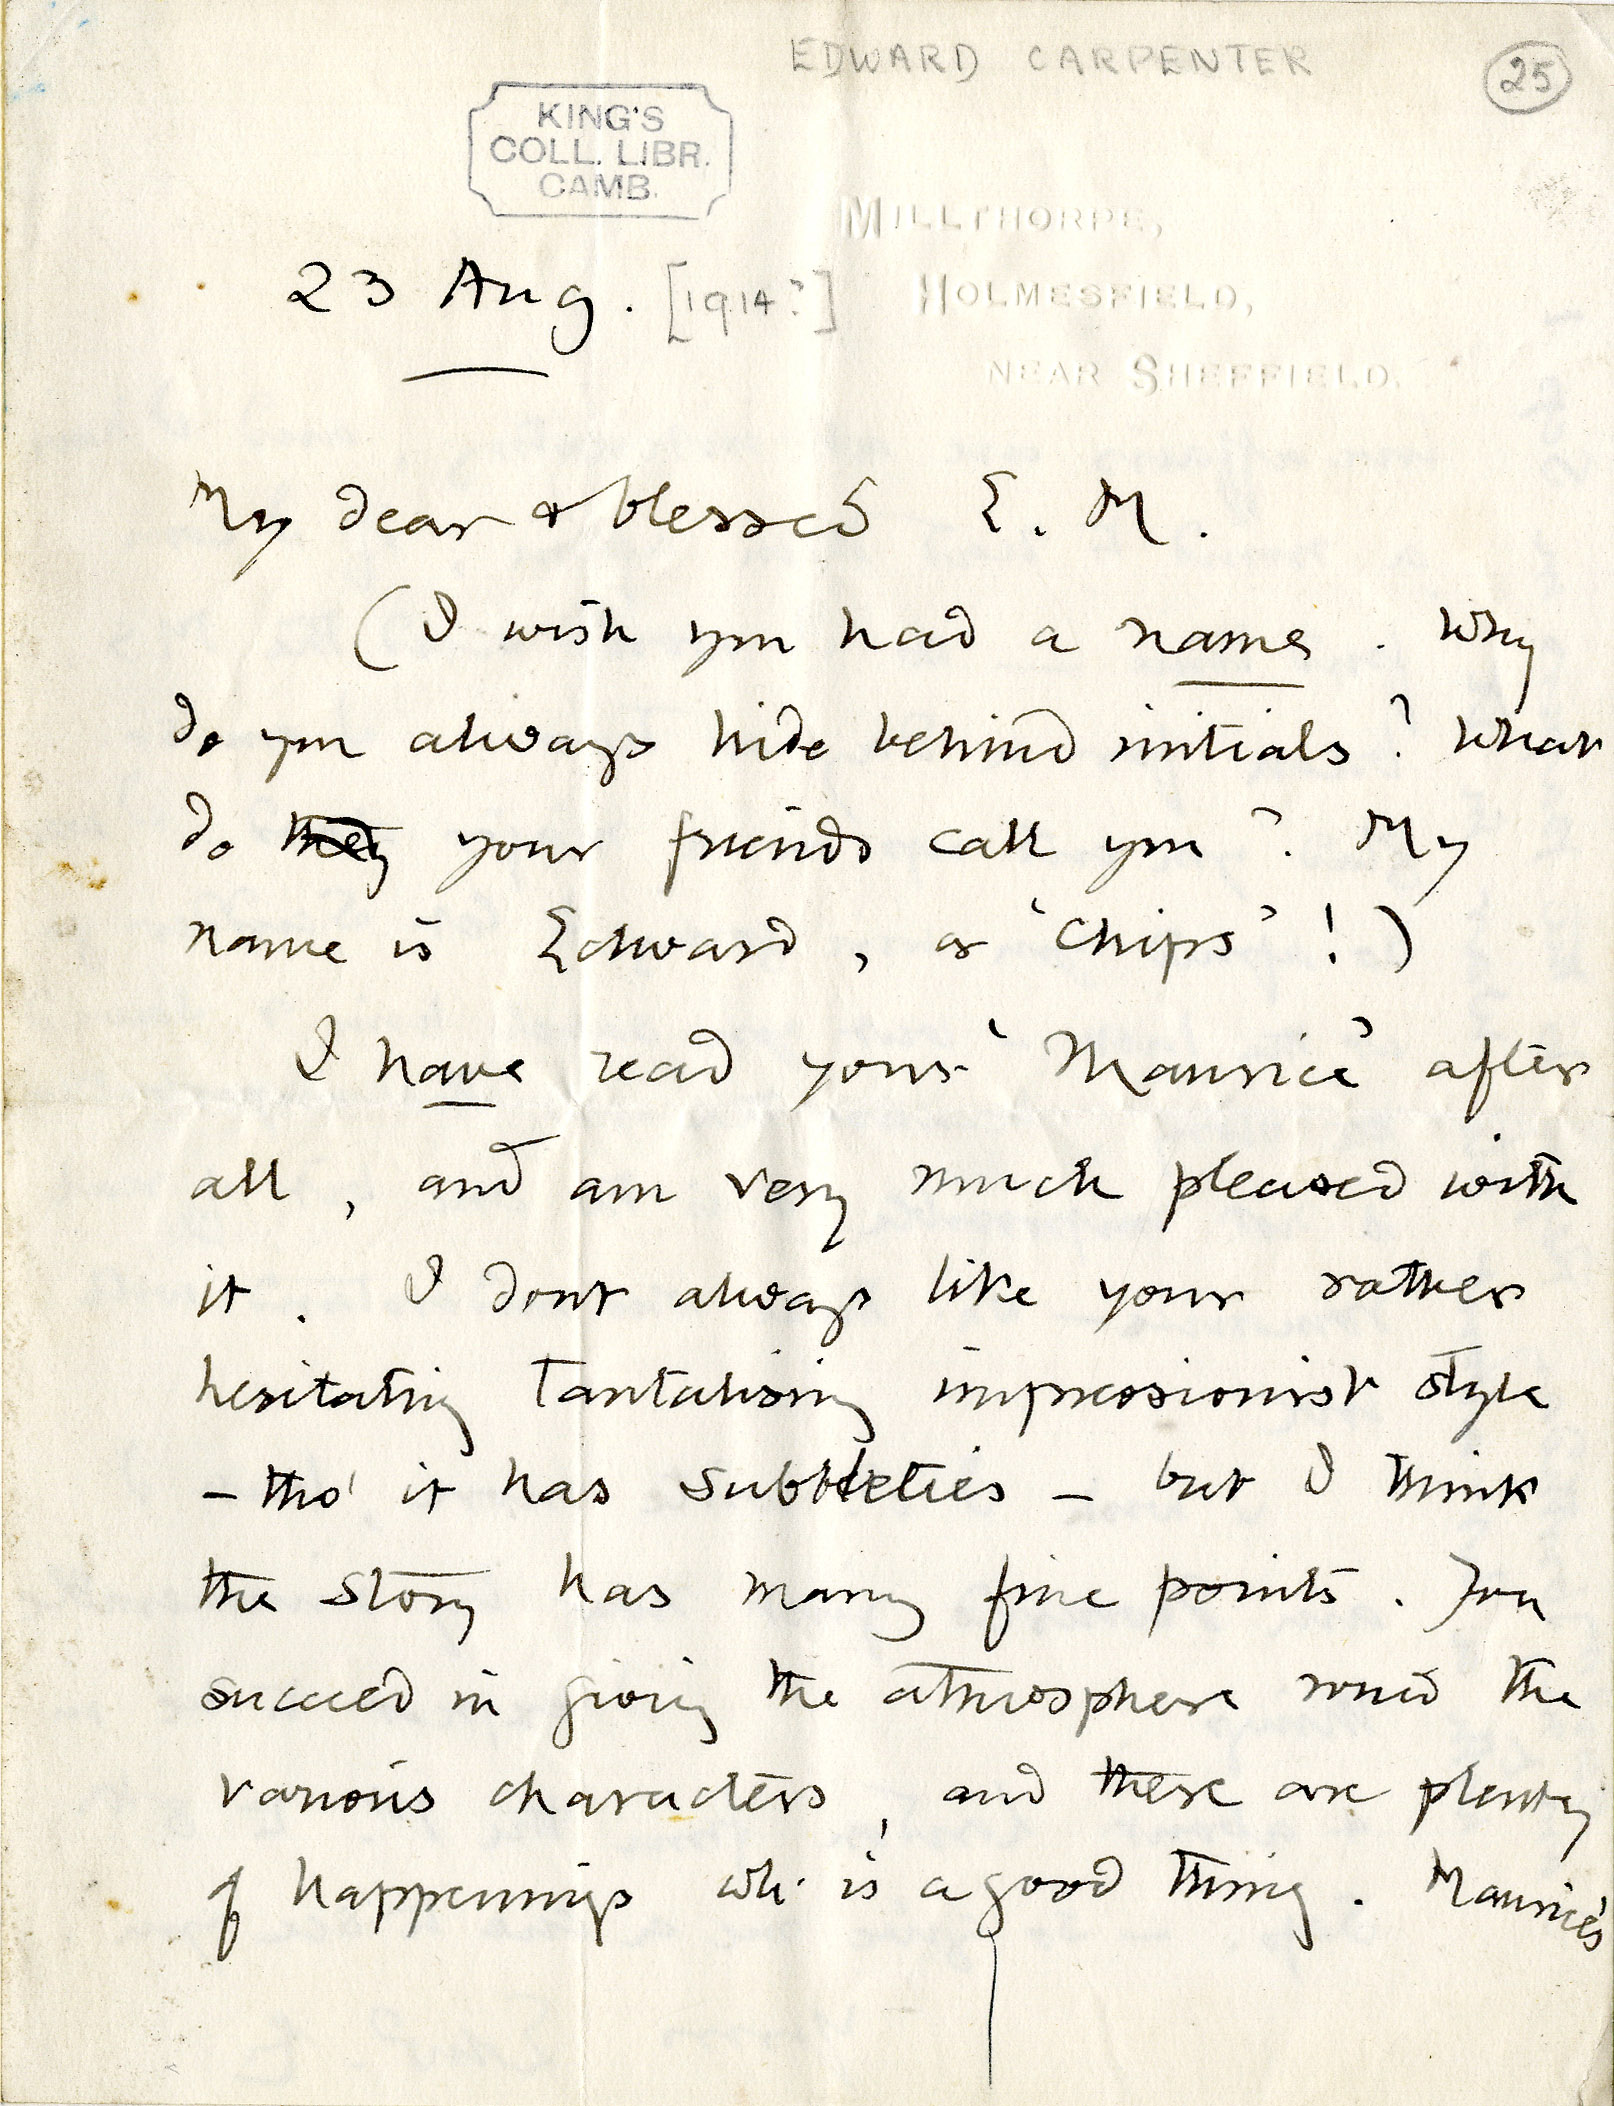 EDWARD CARPENTER
25
KING'S
COLL. LIBR.
CAMB.
MILLTHORPE,
HOLMESFIELD,
NEAR SHEFFIELD.
23 Aug. [1914?]
My dear & blessed E. M.
(I wish you had a name. Why
do you always hide behind initials? What
do they your friends call you? My
name is Edward, or 'Chips'!)
I have read your 'Maurice' after
all, and am very much pleased with
it. I dont always like your rather
hesitating tantalising impressionist style
– tho' it has subtleties – but I think
the story has many fine points. You
succeed in giving the atmosphere round the
various characters, and there are plenty
of happenings wh. is a good thing. Maurice's